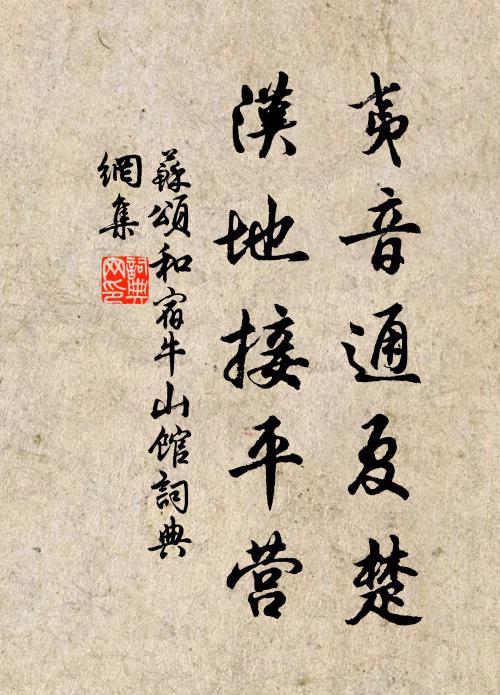 夷音通夏楚
漢地接平营
蘇頌和宿牛山館詞典
網集
詞典网印